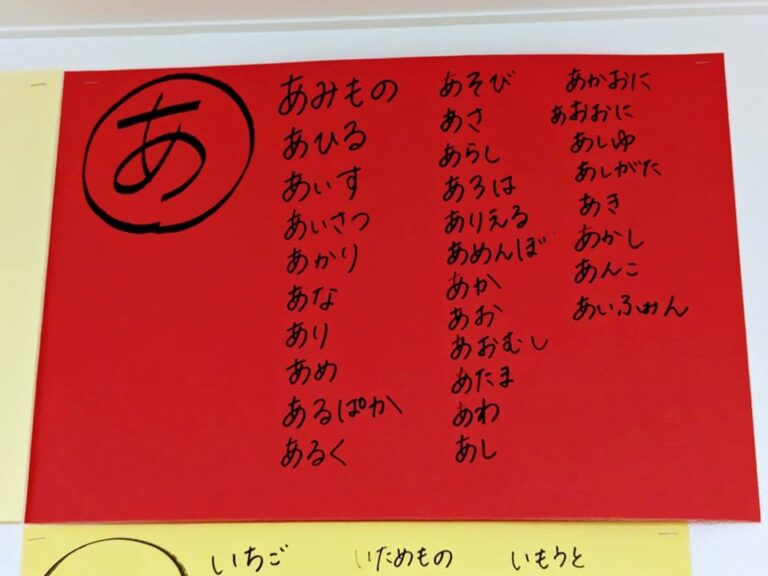 あ
あみもの
あひる
あいす
あいさつ
あかり
あな
あり
あめ
あるぱか
あるく
あそび
あさ
あらし
あろは
ありえる
あめんぼ
あか
あお
あおむし
あたま
あわ
あし
あかおに
あおおに
あしゆ
あしがた
あき
あかし
あんこ
あいふぉん
いちご
いためもの
いもうと